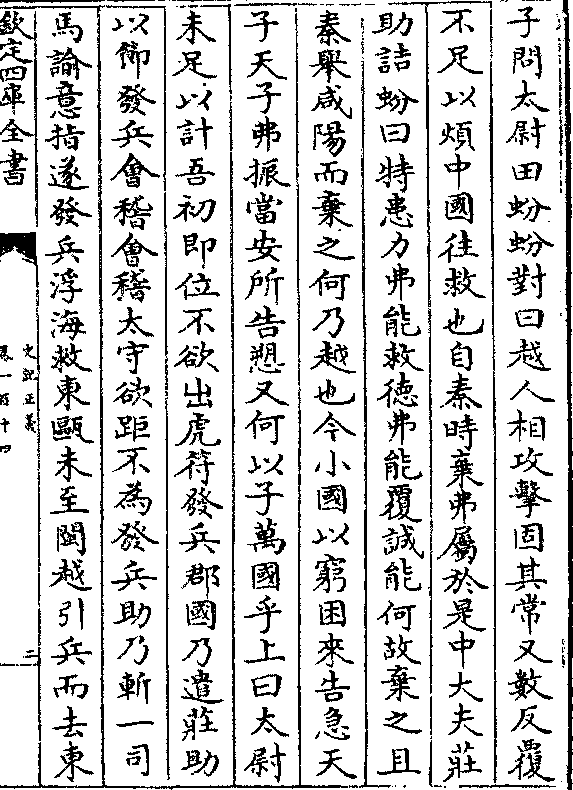 子問太尉田蚡蚡對曰越人相攻擊固其常又數反覆
不足以煩中國往救也自秦時棄弗屬於是中大夫莊
助詰蚡曰特患力弗能救德弗能覆誠能何故棄之且
秦舉咸陽而棄之何乃越也今小國以窮困來告急天
子天子弗振當安所告愬又何以子萬國乎上曰太尉
未足以計吾初即位不欲出虎符發兵郡國乃遣莊助
以節發兵會稽會稽太守欲距不為發兵助乃斬一司
馬諭意指遂發兵浮海救東甌未至閩越引兵而去東
欽定四庫全書
史記正義
卷一百十四
二